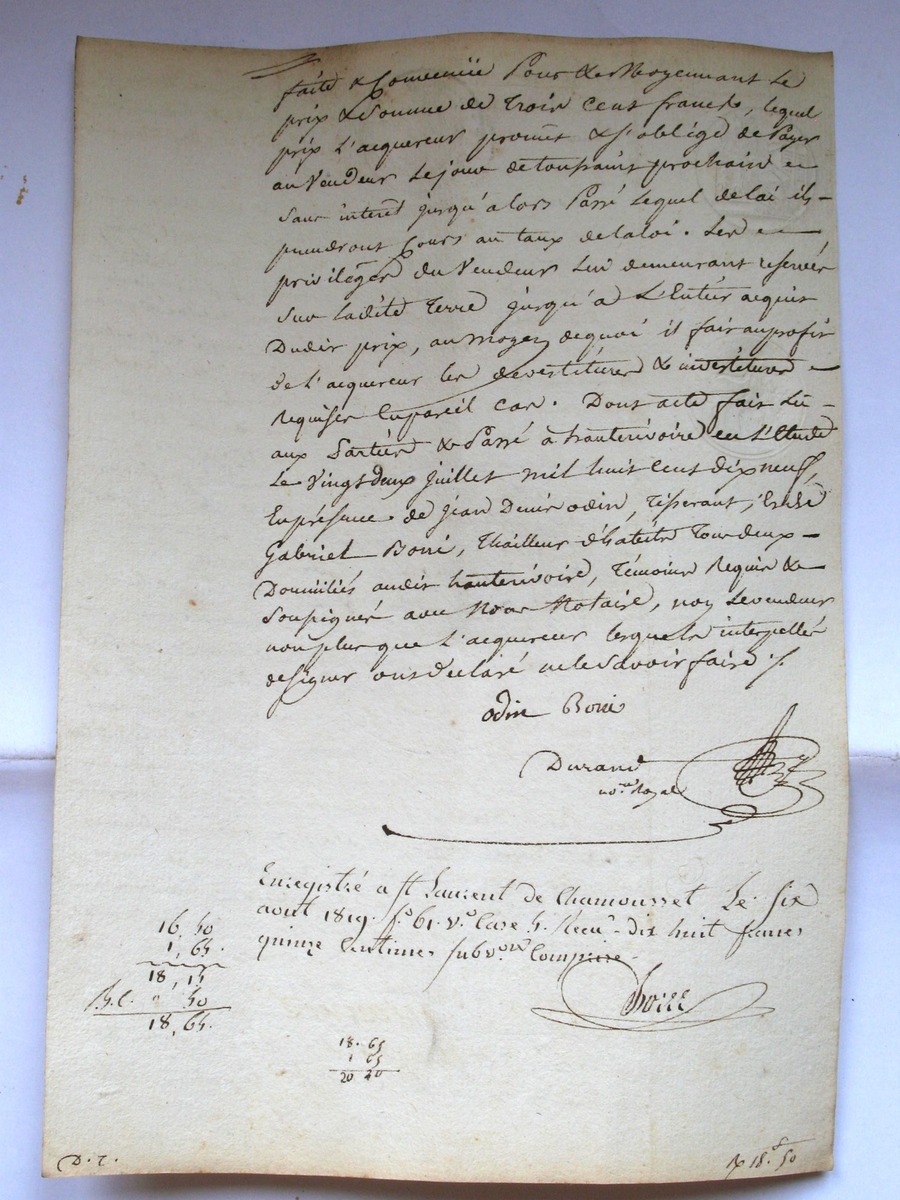 faite & Convenüe Pour & Moyennant Le
prix & Somme de Trois Cent francs, lequel
prix L'acquereur promet & S'oblige de Payer
au Vendeur Le jour de toussaint prochain
Sans interet jusqu'alors Passé Lequel delai ils
prendront Cours au taux de la loi. Les
privilèges du Vendeur Lui demeurant reservés
Sur ladite Terre jusqu'à L'Entier acquit
Dudit prix, au moyen de quoi il fait au profit
de L'acquereur les devestitures & investitures
Requises En pareil cas. Dont acte fait Lu
aux Parties & Passé à hauterivoire en L'Etude
Le Vingt deux juillet mil huit cent dix neuf
En présence de jean Denis odin, Tisserant, &
Gabriel Boni, Thailleur d'habits Tous deux
Domiciliés audit hauterivoire, Témoins Requis &
Soussignés avec Nous Notaire, non Le vendeur
non plus que L'acquereur lesquels interpellés
de signer ont déclaré ne le Savoir faire ./.
odin Boni
Durand
no.re Royal
Enregistré a St Laurent de Chamousset Le Six
aout 1819. f.o 61. v.o Case 5. Recu dix huit francs
quinze Centimes Subv.on Comprise
16, 50
1, 65.
18, 15
50
18, 65.
18. 65
1 65
20 20
D. T.
18.f 50